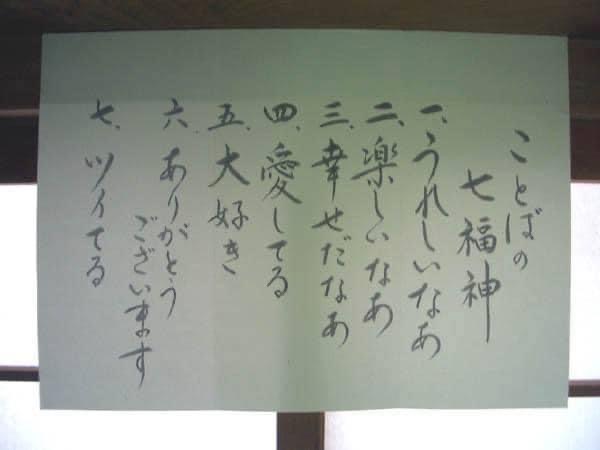 ことばの
七福神
一、うれしいなあ
二、楽しいなあ
三、幸せだなあ
四、愛してる
五、大好き
六、ありがとう
ございます
七、ツイてる